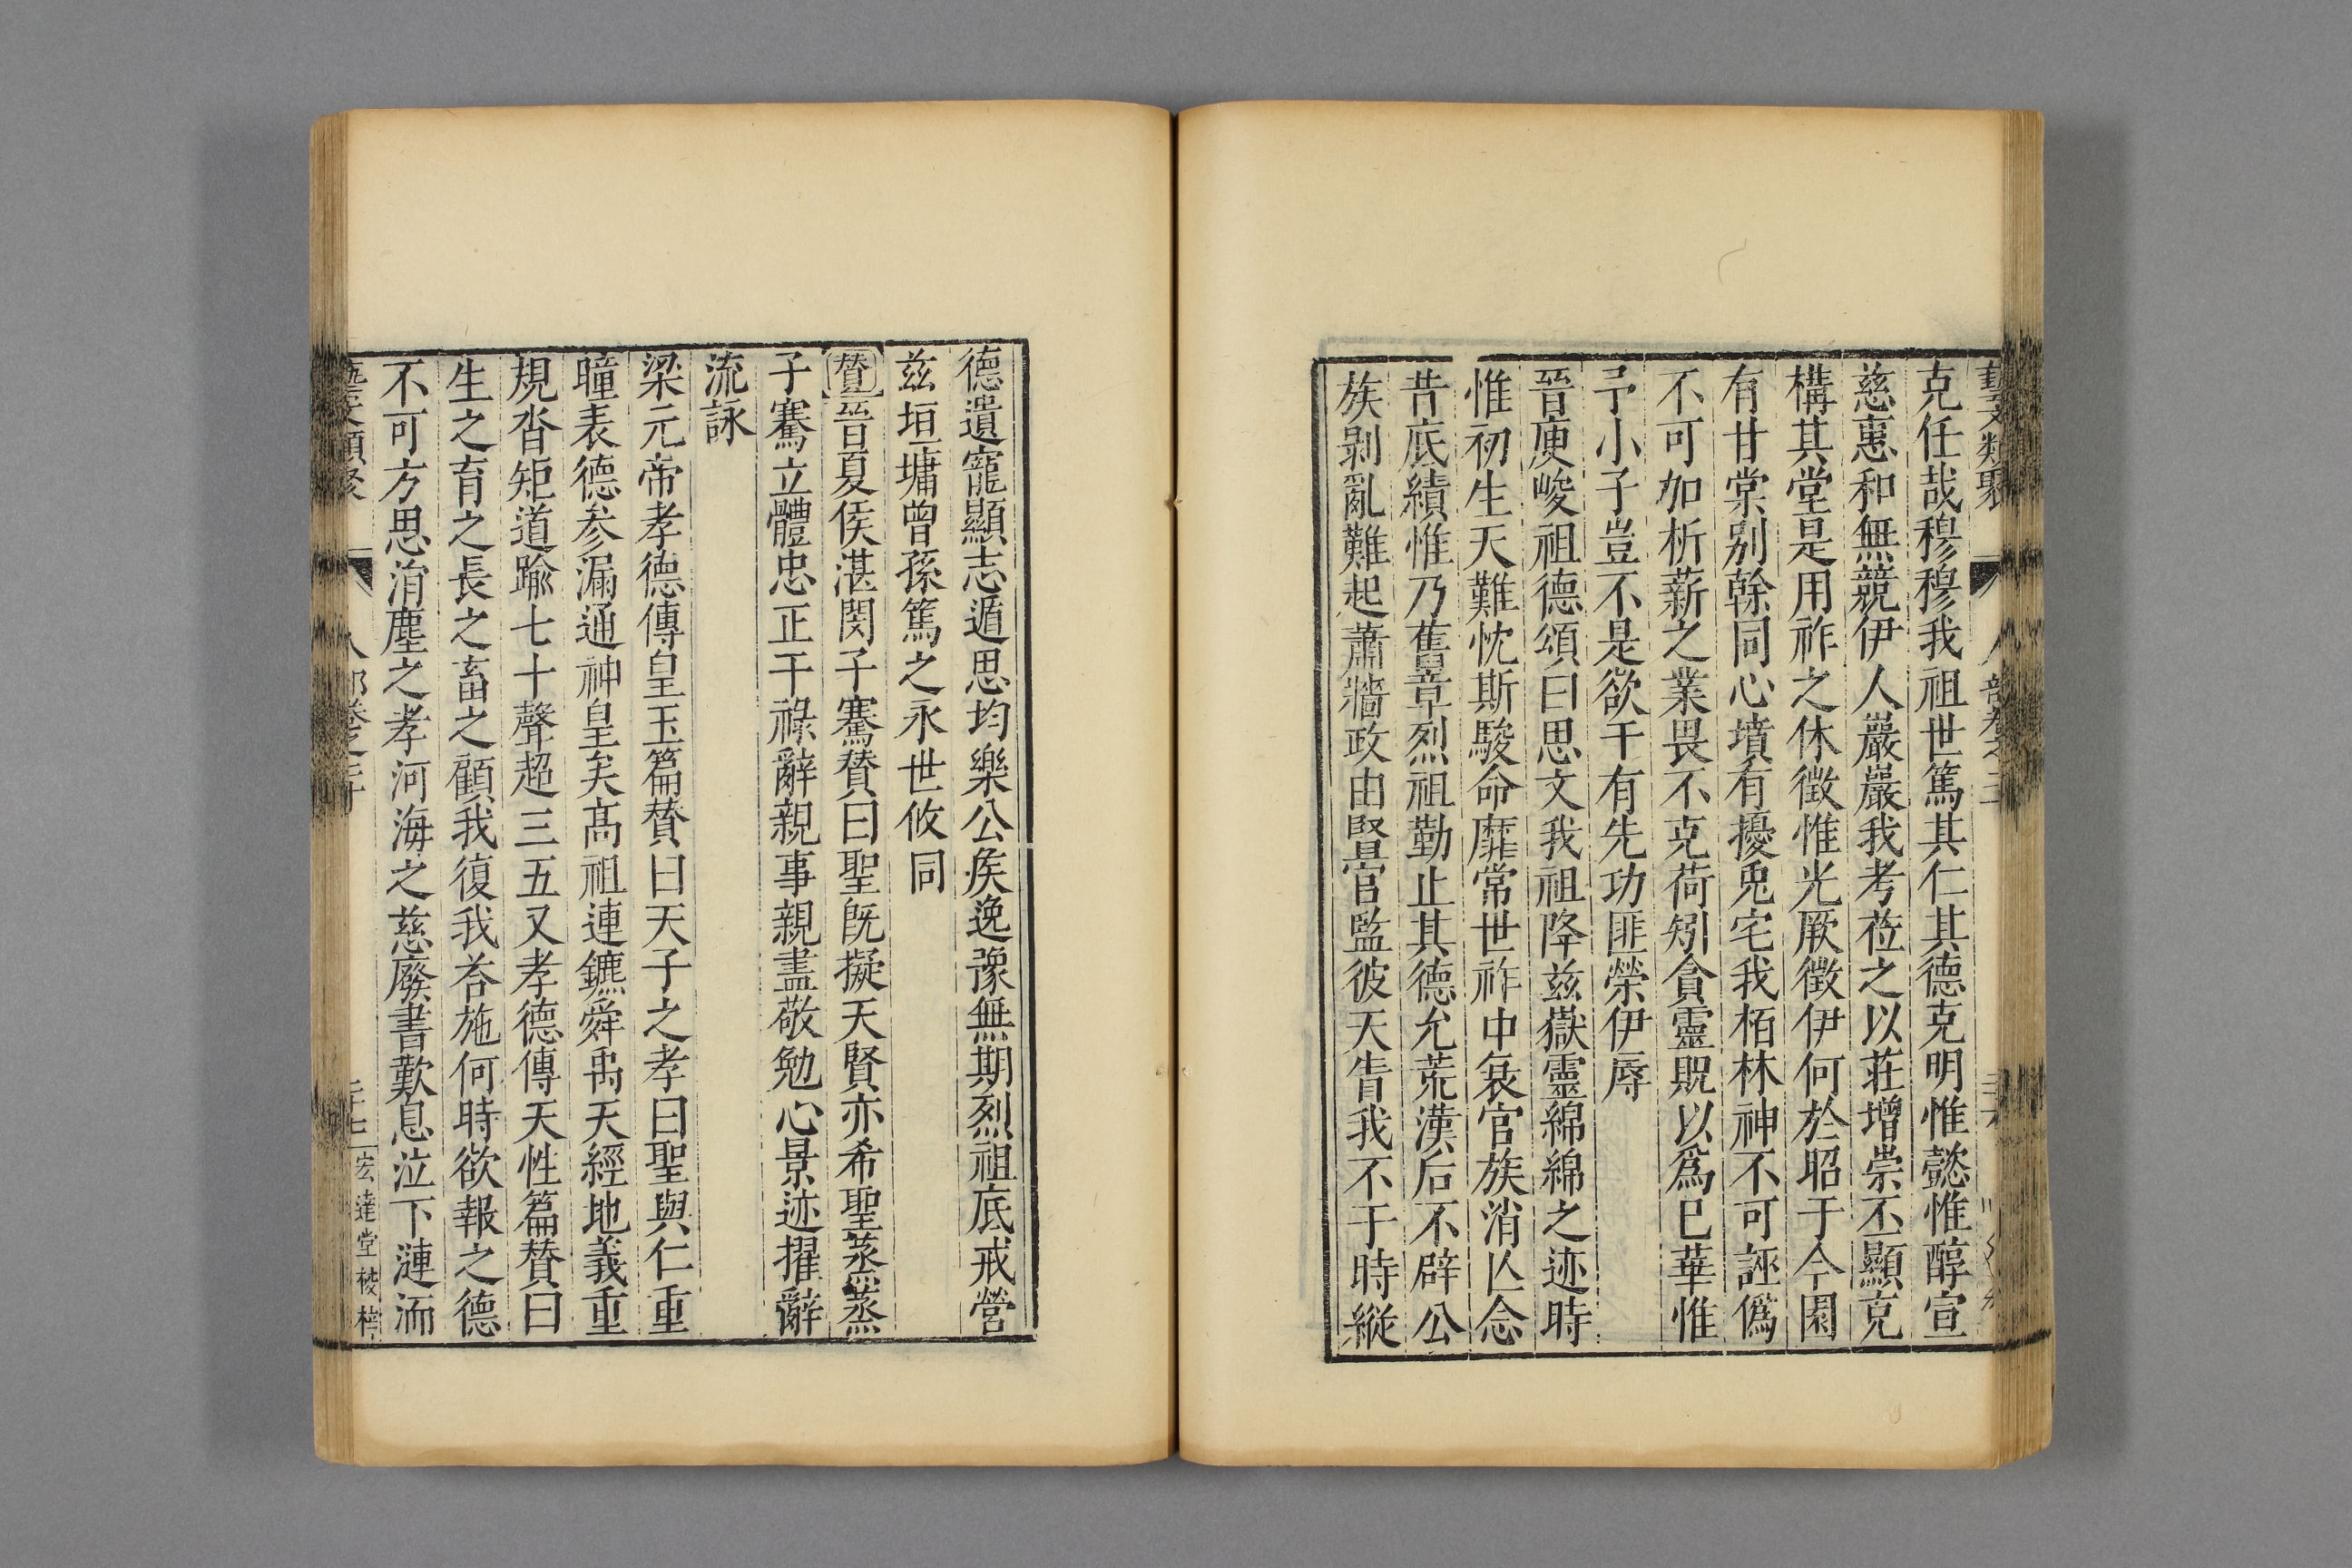 克任哉穆穆我祖世篤其仁其德克明惟懿惟醇宣
慈惠和無競伊人巖巖我考蒞之以莊增崇丕顯克
構其堂是用祚之休徵惟光厥徵伊何於昭于今園
有甘棠别幹同心墳有擾兎宅我栢林神不可誣偽
不可加析薪之業畏不克荷矧貪靈貺以爲巳華惟
予小子豈不是欲干有先功匪榮伊辱
晉庾峻祖德頌曰思文我祖降兹嶽靈綿綿之迹時
惟初生天難忱斯駿命靡常世祚中衰官族消亾念
昔底績惟乃舊章烈祖勤止其德允荒漢后不辟公
族剝亂難起蕭牆政由豎官監彼天眚我不于時縱
德遺寵顯志遁思均樂公矦逸豫無期烈祖底戒營
兹垣墉曾孫篤之永世攸同
贊晉夏侯湛閔子騫贊曰聖旣擬天賢亦希聖蒸蒸
子騫立體忠正干祿辭親事親盡敬勉心景迹擢辭
流詠
梁元帝孝德傳皇王篇贊曰天子之孝曰聖與仁重
瞳表德参漏通神皇矣髙祖連鑣舜禹天經地義重
規沓矩道踰七十聲超三五又孝德傳天性篇贊曰
生之育之長之畜之顧我復我荅施何時欲報之德
不可方思涓塵之孝河海之慈廢書歎息泣下漣洏